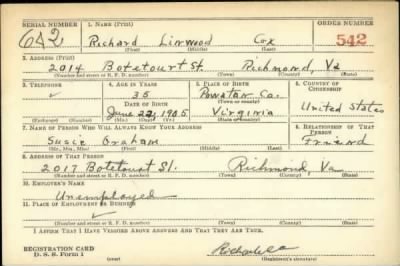 SERIAL NUMBER 1. NAME (Print) ORDER NUMBER
642 Richard Linwood Cox 542
(First) (Middle) (Last)
2. ADDRESS (Print)
2014 Botetourt St. Richmond, Va
(Number and street or R. F. D. number) (Town) (County) (State)
3. TELEPHONE 4. AGE IN YEARS 5. PLACE OF BIRTH 6. COUNTRY OF CITIZENSHIP
35 Powatan Co.
(Town or county)
DATE OF BIRTH
June 22, 1905 Virginia United States
(Exchange) (Number) (Mo.) (Day) (Yr.) (State or country)
7. NAME OF PERSON WHO WILL ALWAYS KNOW YOUR ADDRESS 8. RELATIONSHIP OF THAT PERSON
Susie Graham Friend
(Mr., Mrs., Miss) (First) (Middle) (Last)
9. ADDRESS OF THAT PERSON
2017 Botetourt St. Richmond, Va
(Number and street or R. F. D. number) (Town) (County) (State)
10. EMPLOYER'S NAME
Unemployed
11. PLACE OF EMPLOYMENT OR BUSINESS
(Number and street or R. F. D. number) (Town) (County) (State)
I AFFIRM THAT I HAVE VERIFIED ABOVE ANSWERS AND THAT THEY ARE TRUE.
REGISTRATION CARD
D. S. S. Form 1 (over) (Registrant's signature)